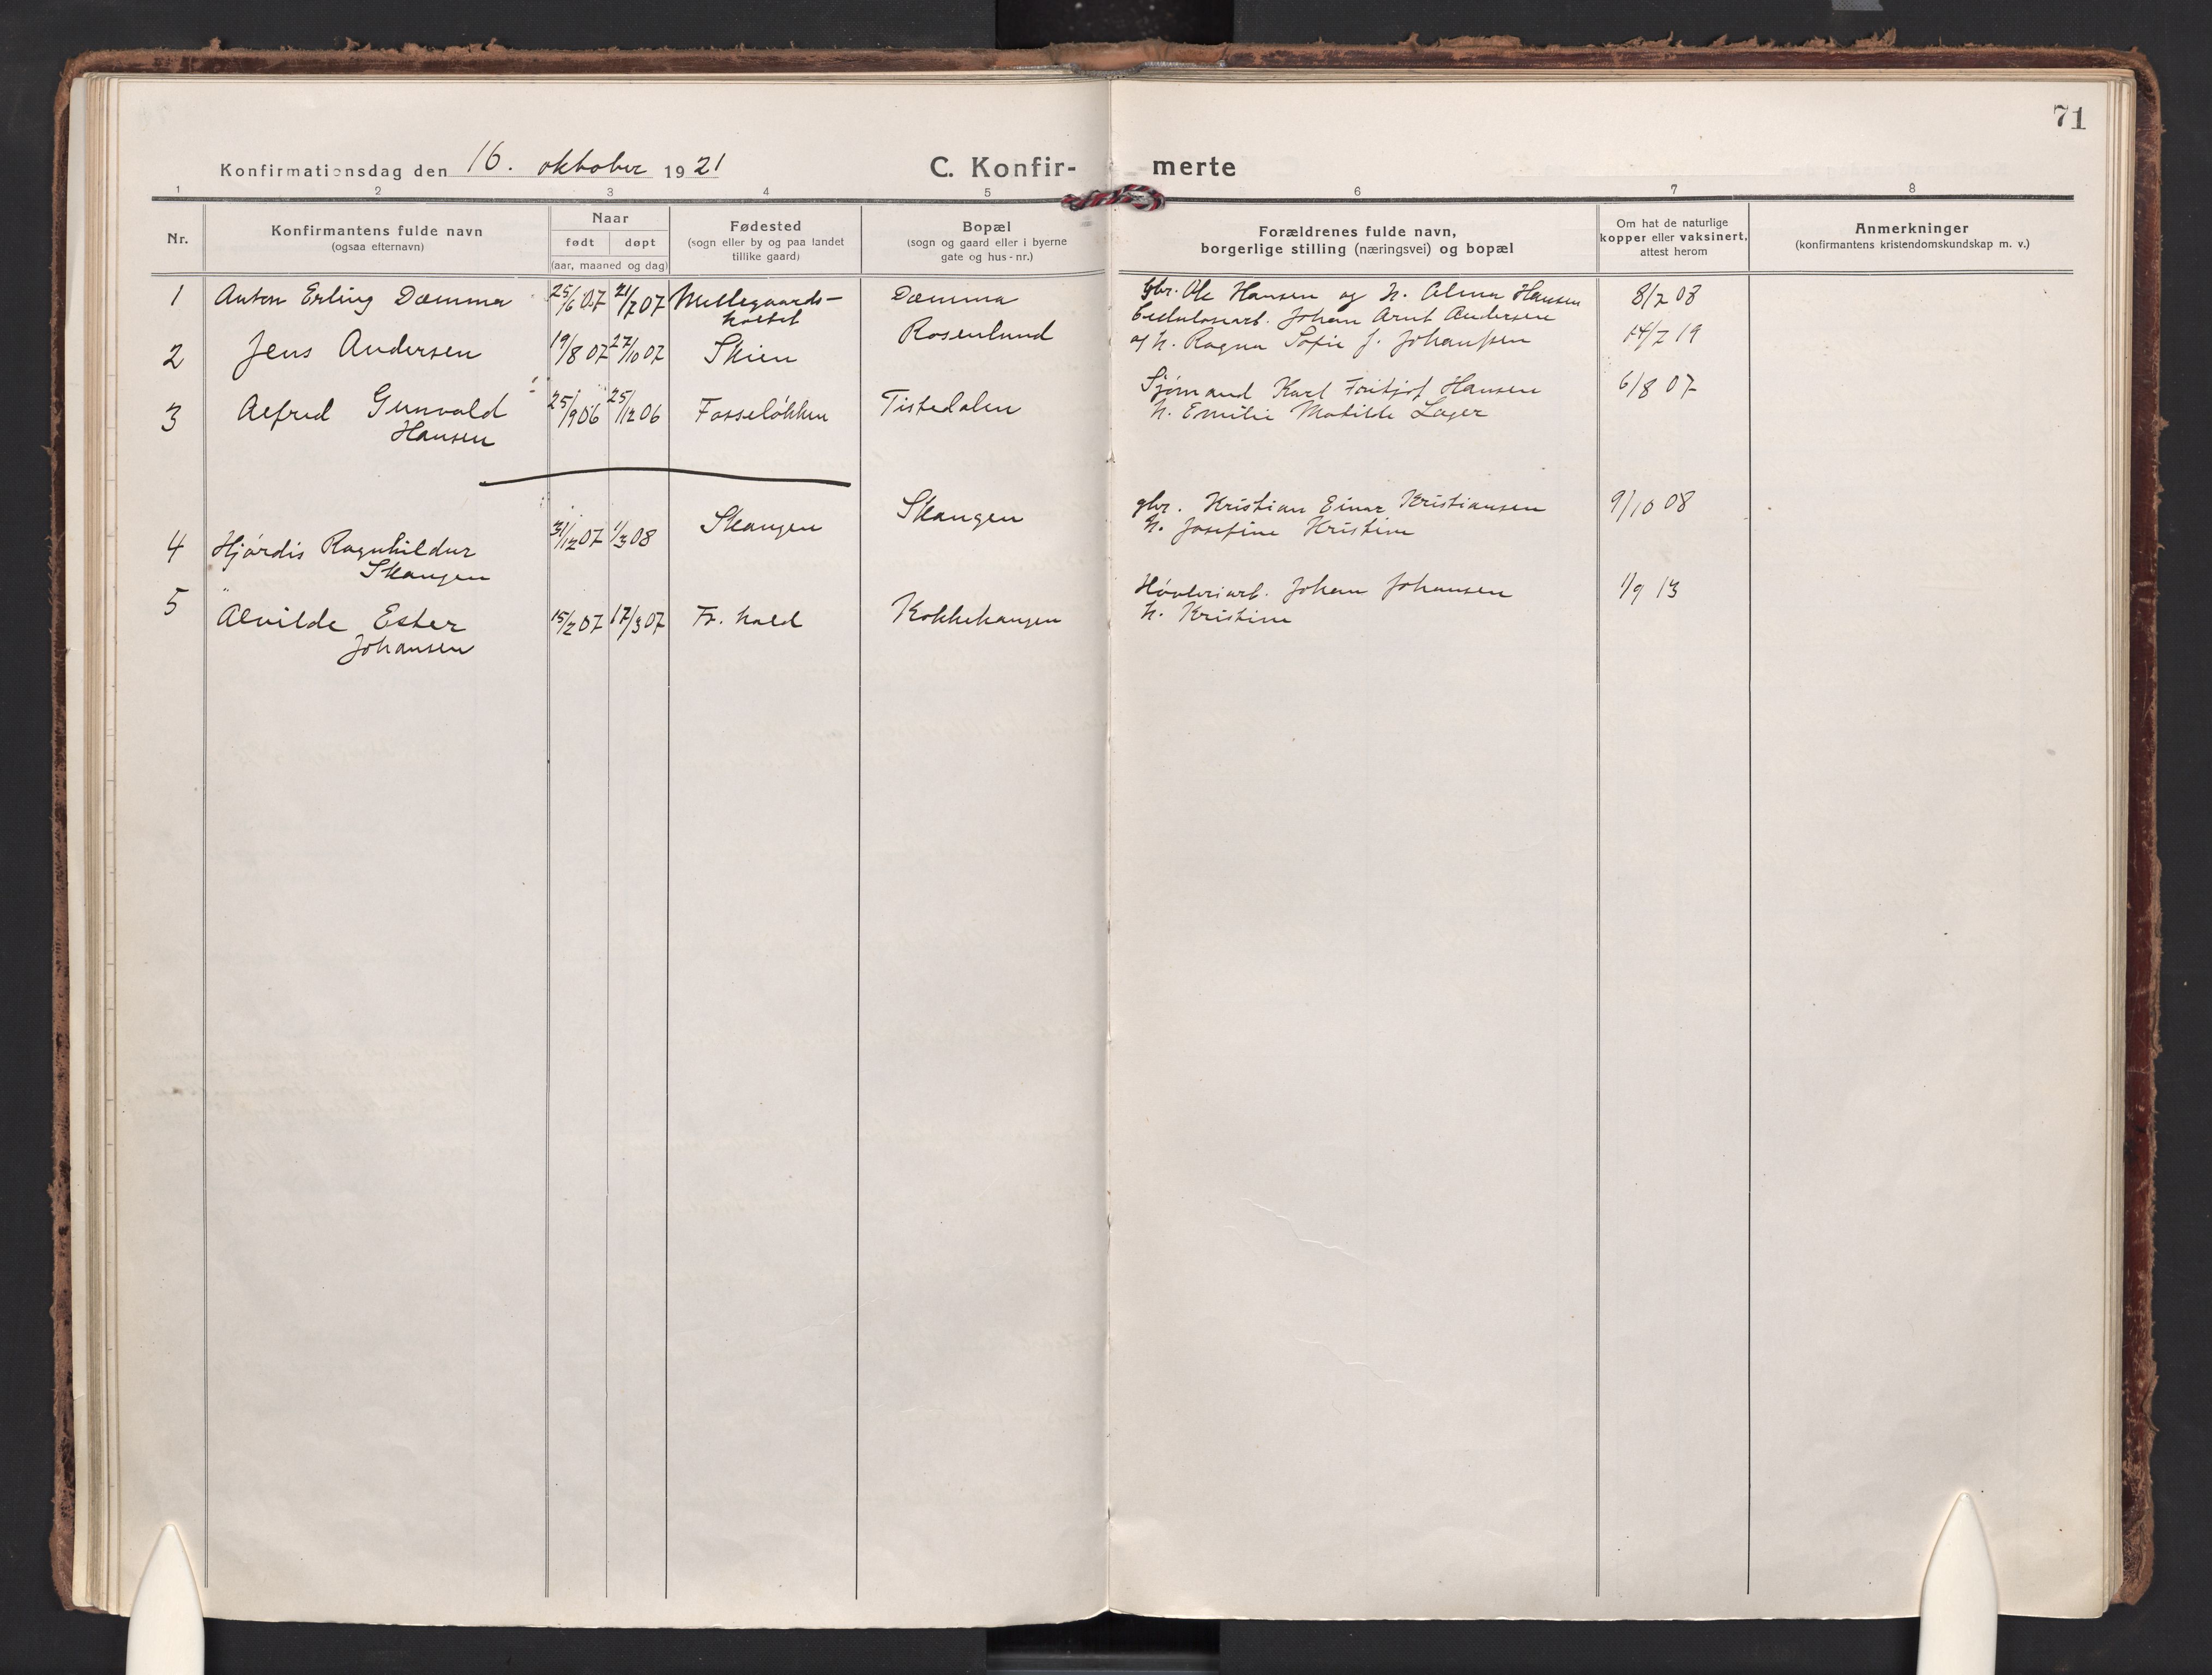 71
Konfirmationsdag den 16. oktober 1921
C. Konfir- merte
1 2 3 4 5 6 7 8
Nr.
Konfirmantens fulde navn
(ogsaa efternavn)
Naar
født døpt
(aar, maaned og dag)
Fødested
(sogn eller by og paa landet
tillike gaard)
Bopæl
(sogn og gaard eller i byerne
gate og hus-nr.)
Forældrenes fulde navn,
borgerlige stilling (næringsvei) og bopæl
Om hat de naturlige
kopper eller vaksinert,
attest herom
Anmerkninger
(konfirmantens kristendomskundskap m. v.)
1 Anton Erling Dæmma 25/6 07 21/7 07 Mellegaards-
holtet
Dæmma
Gbr. Ole Hansen og h. Alma Hansen 8/7 08
2 Jens Andersen 19/8 07 27/10 07 Skien
Rosenlund
Cellulosearb. Johan Arnt Andersen
og h. Ragna Sofie J. Johanssen 14/7 19
3 Alfred Gunvald
Hansen
25/9 06 25/12 06 Fosseløkken Tistedalen
Sjømand Karl Fritjof Hansen 6/8 07
h. Emilie Matilde Lager
4 Hjørdis Ragnhildur
Skangen
31/12 07 1/3 08 Skangen Skangen
gbr. Kristian Einar Kristiansen 9/10 08
h. Josefine Kristine
5 Alvilde Ester
Johansen
15/2 07 17/3 07 Fr. hald Kokkehaugen
Høvleriarb. Johan Johansen 1/9 13
h. Kristine